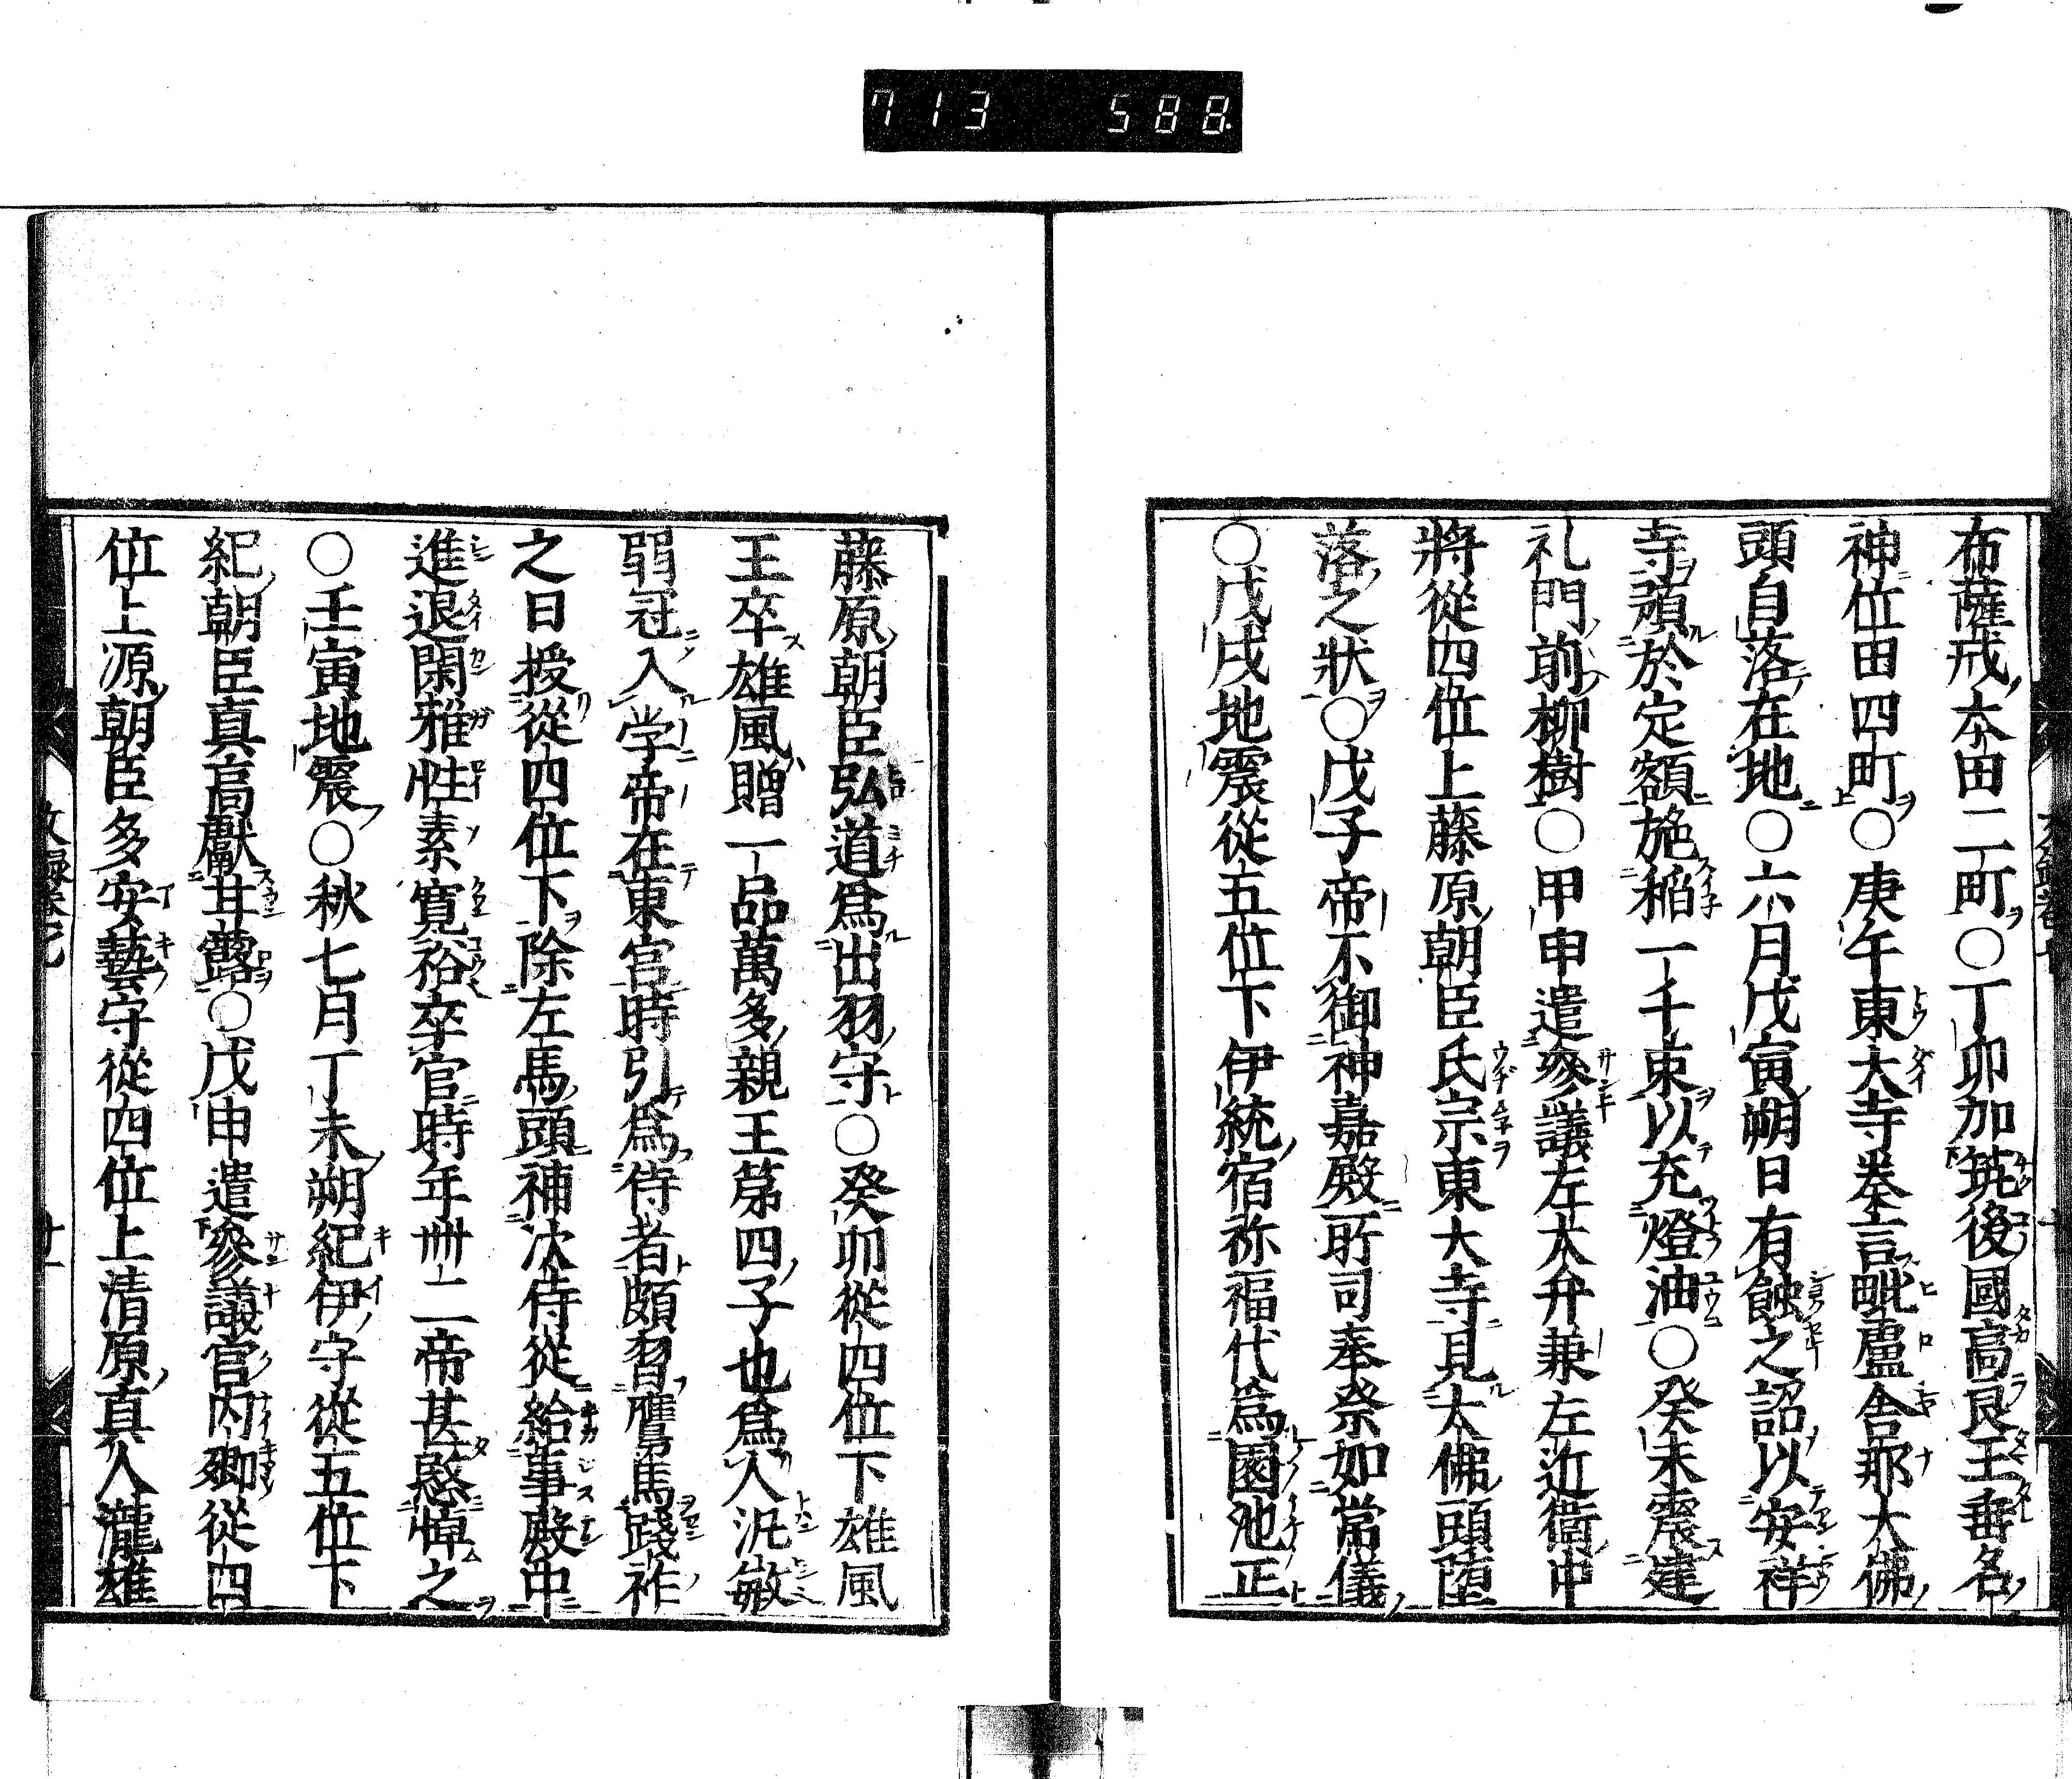 713 588
布薩戒本田二町○丁卯加筑後國高良玉垂名
神位田四町○庚午東大寺奏言毗盧舎那大佛
頭自落在地○六月戊寅朔日有蝕之詔以安祥
寺預於定額施稲一千束以充燈油○癸未震建
礼門前柳樹○甲申遣參議左大弁兼左近衛中
將從四位上藤原朝臣氏宗東大寺見大佛頭墮
落之狀○戊子帝不御神嘉殿所司奉祭如常儀
○戊戌地震從五位下伊統宿祢福代爲園池正
藤原朝臣弘道爲出羽守○癸卯從四位下雄風
王卒雄風贈一品萬多親王第四子也爲人汎敏
弱冠入学帝在東宮時引爲侍者頗習鷹馬踐祚
之日授從四位下除左馬頭補次侍從給事殿中
進退閑雅性素寛裕卒官時年卌二帝甚愍悼之
○壬寅地震○秋七月丁未朔紀伊守從五位下
紀朝臣真高獻甘露○戊申遣參議宮内卿從四
位上源朝臣多安藝守從四位上清原真人瀧雄